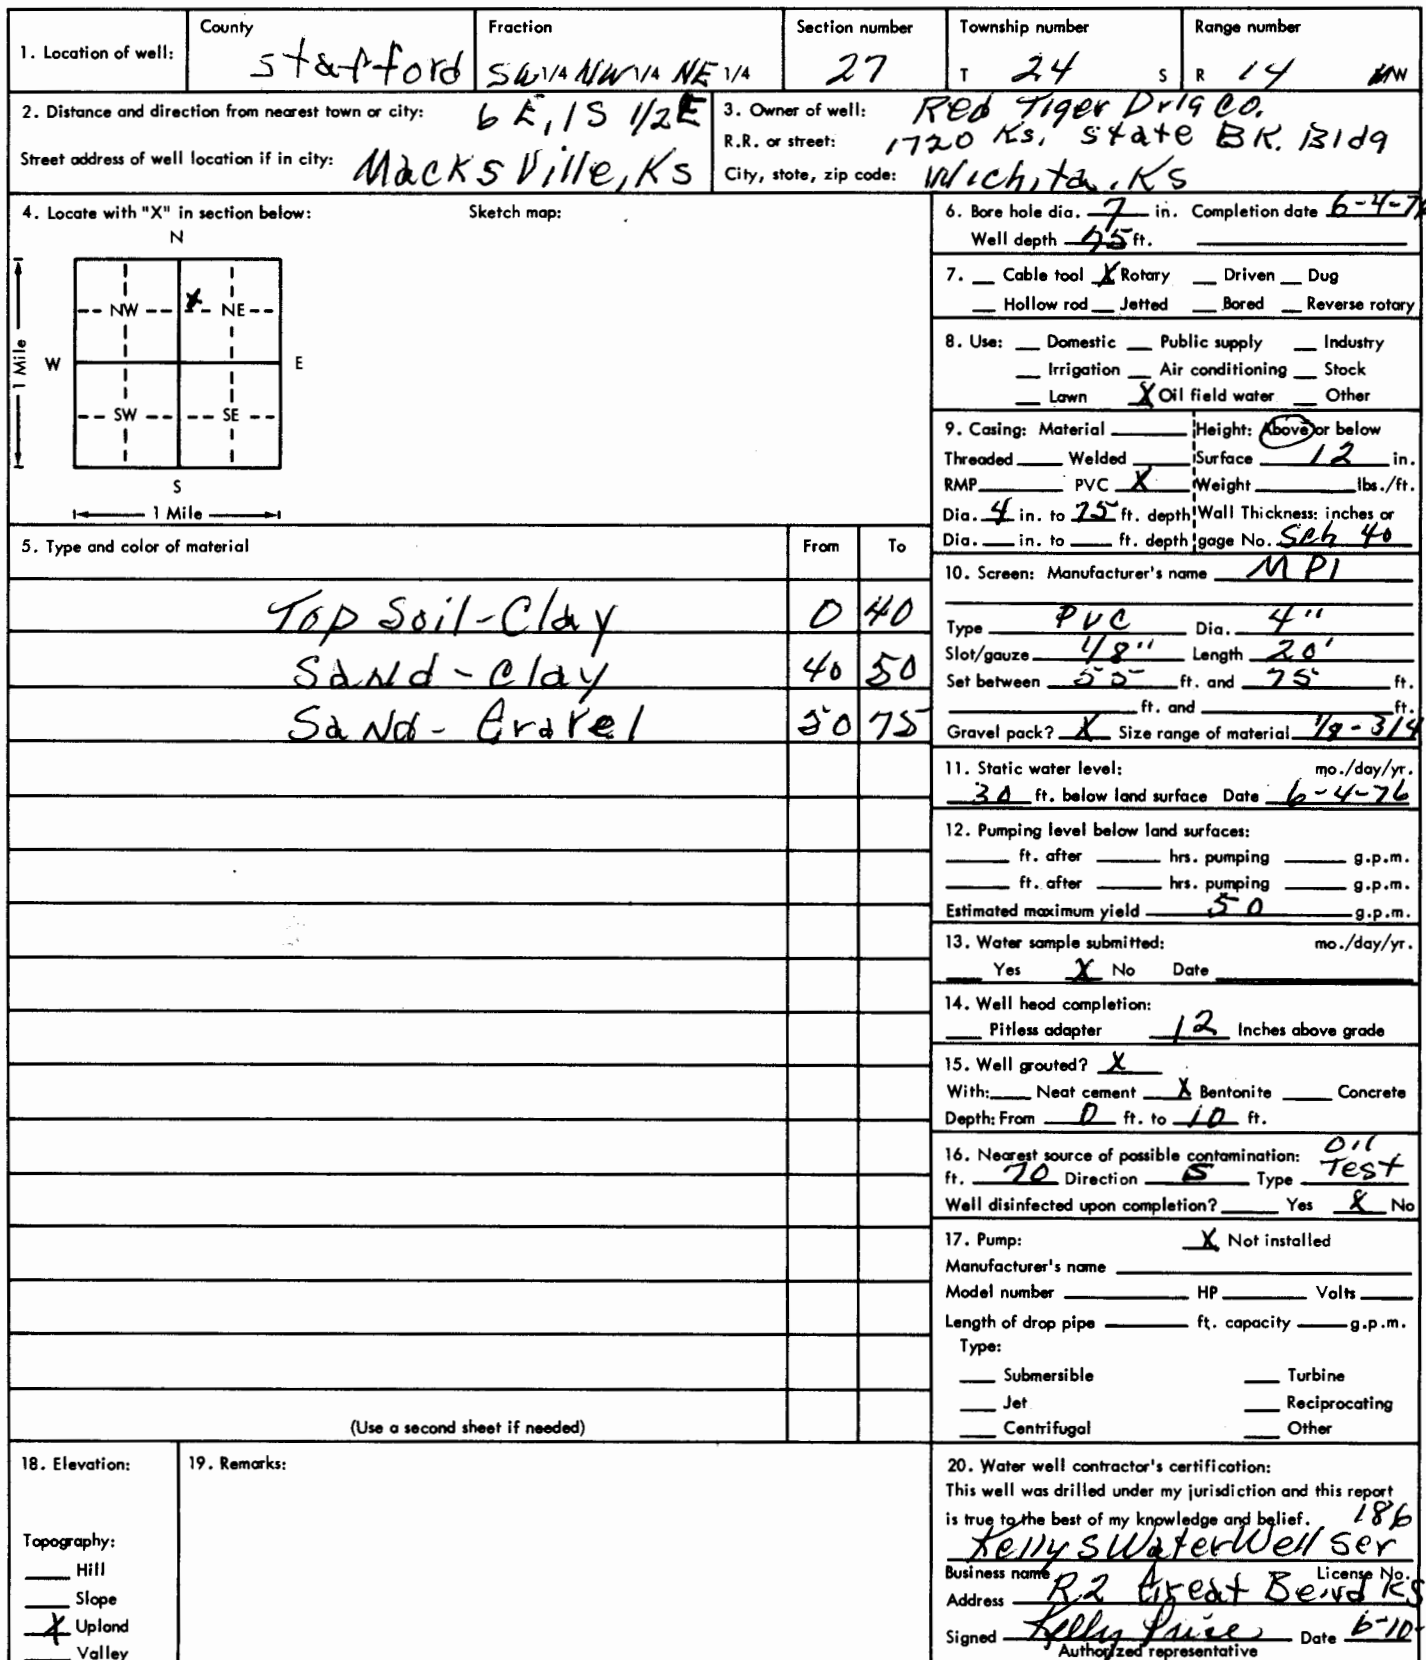 1. Location of well: County Stafford Fraction SW 1/4 NW 1/4 NE 1/4 Section number 27 Township number T 24 S Range number R 14 W
2. Distance and direction from nearest town or city: 6 E, 1 S 1/2 E
Street address of well location if in city: Macksville, Ks
3. Owner of well: Red Tiger Drlg Co.
R.R. or street: 1720 Ks. State BK. Bldg
City, state, zip code: Wichita, Ks
4. Locate with "X" in section below: Sketch map:
N
NW X NE
W E
SW SE
S
1 Mile
1 Mile
5. Type and color of material From To
Top Soil-Clay 0 40
Sand-Clay 40 50
Sand-Gravel 50 75
(Use a second sheet if needed)
6. Bore hole dia. 7 in. Completion date 6-4-76
Well depth 75 ft.
7. Cable tool X Rotary Driven Dug
Hollow rod Jetted Bored Reverse rotary
8. Use: Domestic Public supply Industry
Irrigation Air conditioning Stock
Lawn X Oil field water Other
9. Casing: Material Height: Above or below
Threaded Welded Surface 12 in.
RMP PVC X Weight lbs./ft.
Dia. 4 in. to 75 ft. depth Wall Thickness: inches or
Dia. in. to ft. depth gage No. Sch 40
10. Screen: Manufacturer's name MPI
Type PVC Dia. 4"
Slot/gauze 1/8" Length 20'
Set between 55 ft. and 75 ft.
ft. and ft.
Gravel pack? X Size range of material 1/8 - 3/4
11. Static water level: mo./day/yr.
30 ft. below land surface Date 6-4-76
12. Pumping level below land surfaces:
ft. after hrs. pumping g.p.m.
ft. after hrs. pumping g.p.m.
Estimated maximum yield 50 g.p.m.
13. Water sample submitted: mo./day/yr.
Yes X No Date
14. Well head completion:
Pitless adapter 12 Inches above grade
15. Well grouted? X
With: Neat cement X Bentonite Concrete
Depth: From 0 ft. to 10 ft.
16. Nearest source of possible contamination: Oil
ft. 70 Direction S Type Test
Well disinfected upon completion? Yes X No
17. Pump: X Not installed
Manufacturer's name
Model number HP Volts
Length of drop pipe ft. capacity g.p.m.
Type:
Submersible Turbine
Jet Reciprocating
Centrifugal Other
18. Elevation:
Topography:
Hill
Slope
X Upland
Valley
19. Remarks:
20. Water well contractor's certification:
This well was drilled under my jurisdiction and this report
is true to the best of my knowledge and belief. 186
Kellys Water Well Ser
Business name License No.
Address R2 Great Bend Ks
Signed Kelly Price Date 6-10-
Authorized representative